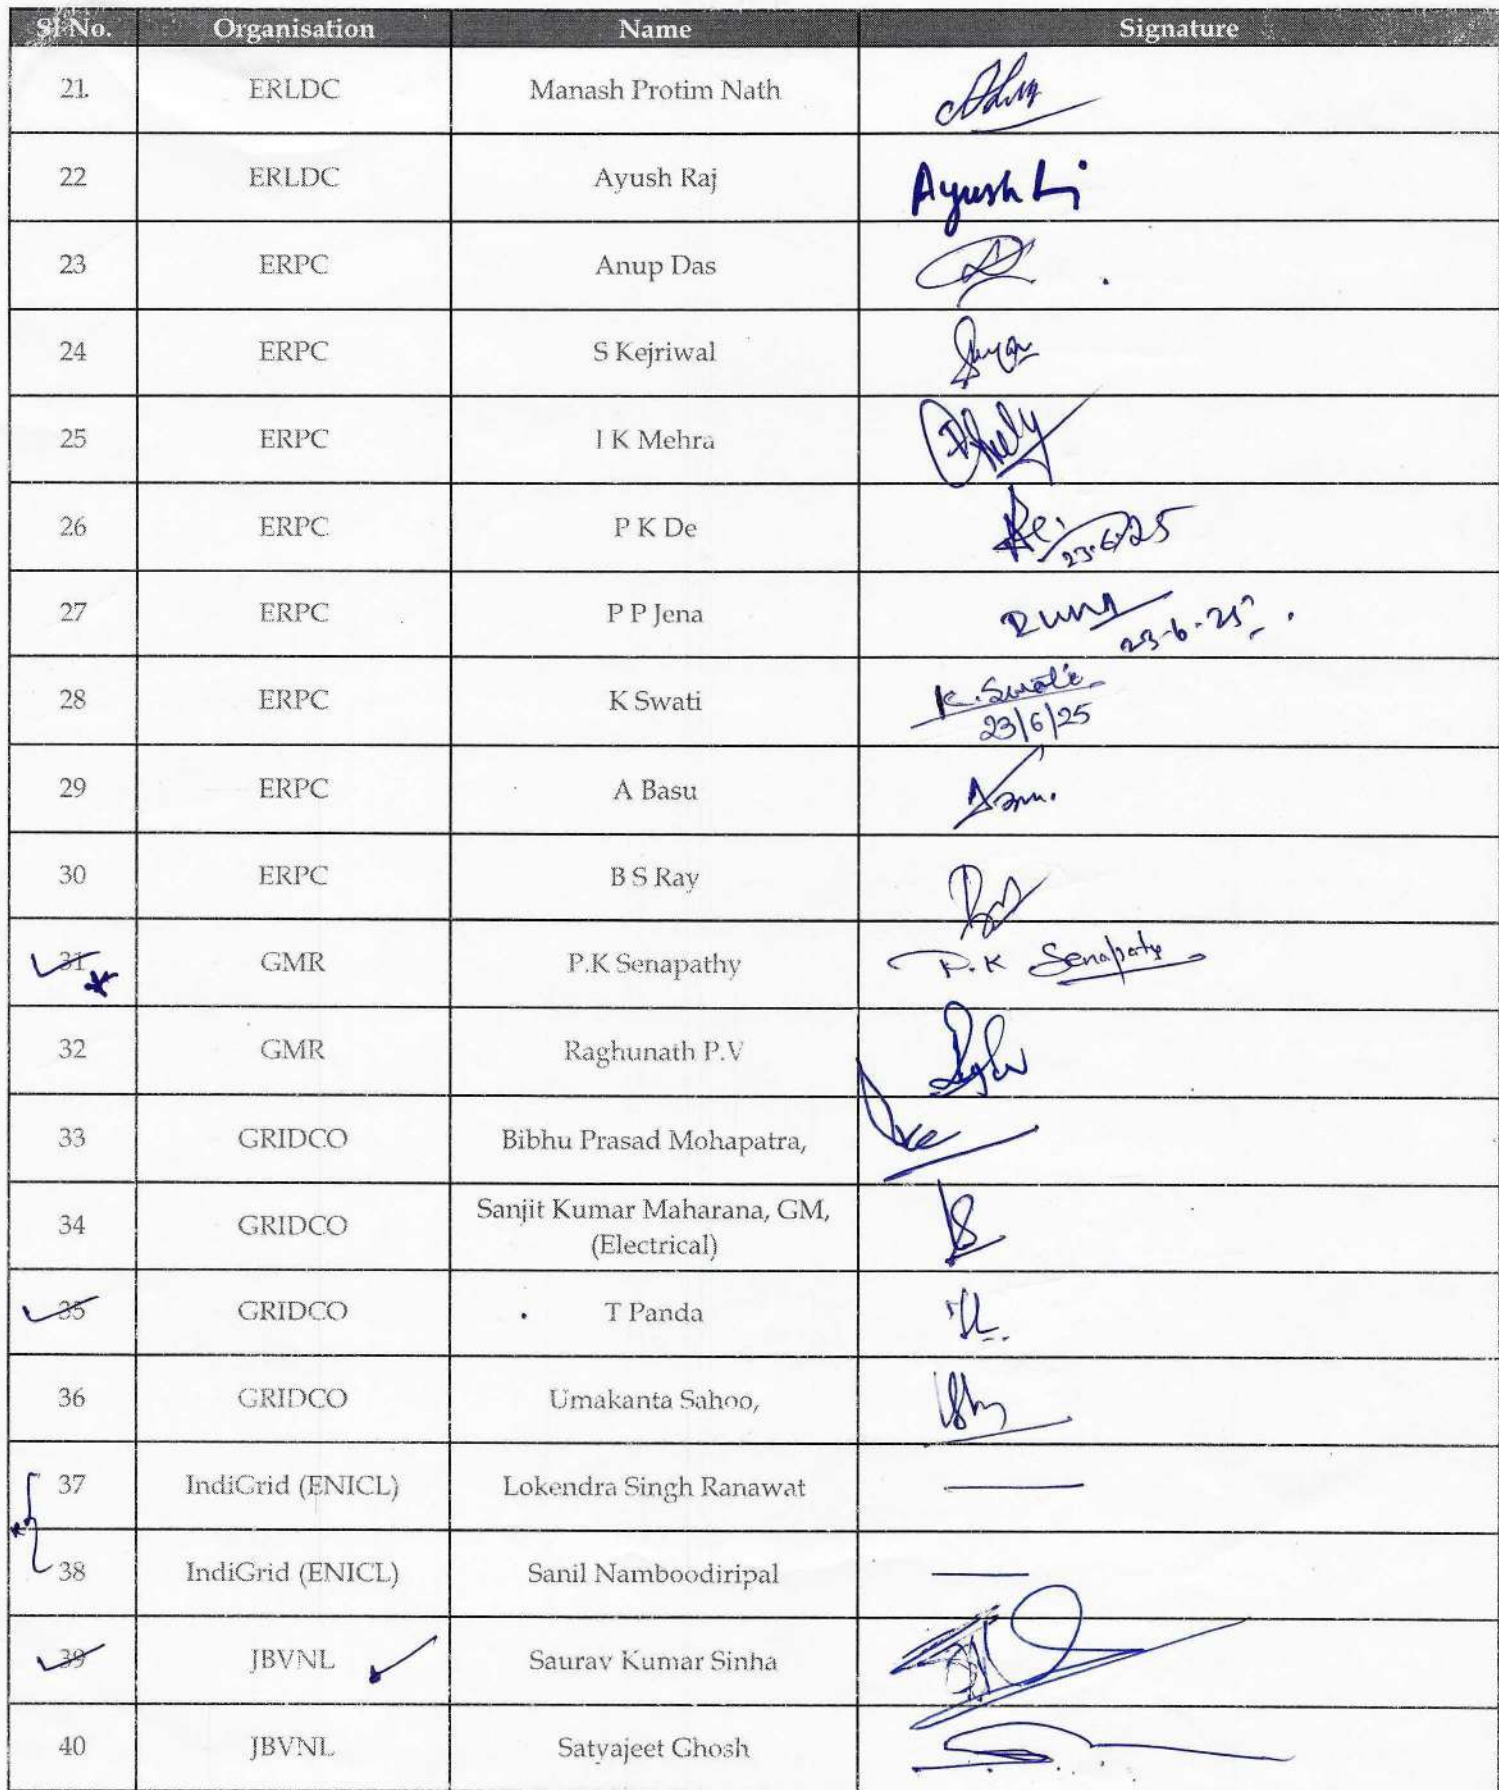 Sl No. Organisation Name Signature
21. ERLDC Manash Protim Nath
22 ERLDC Ayush Raj Ayush
23 ERPC Anup Das
24 ERPC S Kejriwal
25 ERPC I K Mehra
26 ERPC P K De
23.6.25
27 ERPC P P Jena
23-6-25
28 ERPC K Swati K. Swati
23/6/25
29 ERPC A Basu
30 ERPC B S Ray
31 GMR P.K Senapathy P.K Senapaty
32 GMR Raghunath P.V
33 GRIDCO Bibhu Prasad Mohapatra,
34 GRIDCO Sanjit Kumar Maharana, GM,
(Electrical)
35 GRIDCO T Panda
36 GRIDCO Umakanta Sahoo,
37 IndiGrid (ENICL) Lokendra Singh Ranawat
38 IndiGrid (ENICL) Sanil Namboodiripal
39 JBVNL Saurav Kumar Sinha
40 JBVNL Satyajeet Ghosh